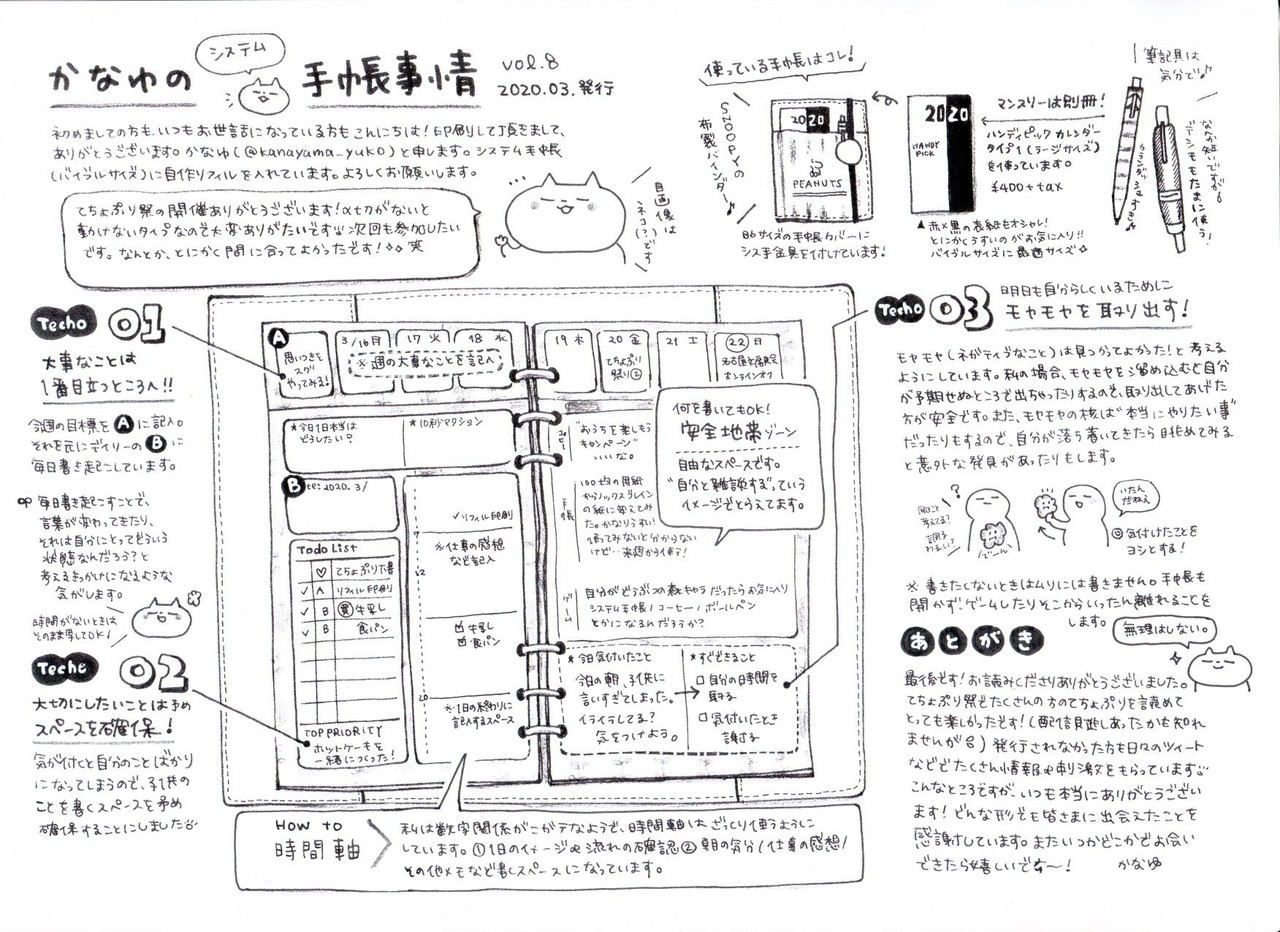 かなゆの
システム
手帳事情
vol.8
2020.03.発行
初めましての方も、いつもお世話になっている方もこんにちは！印刷して頂きまして、
ありがとうございます。かなゆ(@kanayama_yuko)と申します。システム手帳
(バイブルサイズ)に自作リフィルを入れています。よろしくお願いします。
てちょぷり祭の開催ありがとうございます！〆切がないと
動けないタイプなので大変ありがたいです 次回も参加したい
です。なんとか、とにかく間に合ってよかったです！
自画像は
ネコ(?)です
使っている手帳はコレ！
SNOOPYの
布製バインダー♪
20 20
PEANUTS
B6サイズの手帳カバーに
シス手金具を付けています！
20 20
HANDY
PICK
マンスリーは別冊！
ハンディピック カレンダー
タイプ1(ラージサイズ)
を使っています。
¥400+tax
▲赤×黒の表紙もオシャレ！
とにかくうすいのがお気に入り!!
バイブルサイズに最適サイズ
筆記具は
気分で♪
たまに使う！
Techo 01
大事なことは
1番目立つところへ!!
今週の目標を A に記入。
それを元にデイリーの B に
毎日書き起こしています。
毎日書き起こすことで、
言葉が変わってきたり、
それは自分にとってどういう
状態なんだろう？と
考えるきっかけになるような
気がします。
時間がないときは
そのまま写してOK！
Techo 02
大切にしたいことは予め
スペースを確保！
気が付くと自分のことばかり
になってしまうので、子供の
ことを書くスペースを予め
確保することにしました
A
思いつきを
スグ
やってみる！
3/16月
17 火
18 水
※週の大事なことを記入
★今日1日本当は
どうしたい？
★10秒アクション
B
te: 2020. 3/
Todo List
♡ てちょぷり下書
✓ A リフィル印刷
✓ B 買 牛乳
✓ B 食パン
TOP PRIORITY
ホットケーキを
一緒につくった！
✓リフィル印刷
7
※仕事の感想
など記入
12
牛乳
食パン
20
※1日の終わりに
記入するスペース
19 木
20 金
てちょぷり
祭り②
21 土
22 日
オンラインオフ
"おうちを楽しもう
キャンペーン"
いいな。
手帳
100均の用紙
からノックスブレイン
の紙に変えてみ
た。かなりうすい！
使ってみないと分からない
けど…来週から使う！
何を書いてもOK！
安全地帯ゾーン
自由なスペースです。
"自分と雑談する"っていう
イメージでとらえてます。
ゲーム
自分がどうぶつの森キャラだったらお気に入り
システム手帳/コーヒー/ボールペン
とかになるんだろうか？
★今日気付いたこと
今日の朝、子供に
言いすぎてしまった。→
イライラしてる？
気をつけよう。
★すぐできること
□自分の時間を
取る
□気付いたとき
謝する
HOW TO
時間軸
私は数字関係がニガテなようで、時間軸は、ざっくり使うように
しています。①1日のイメージや流れの確認②朝の気分/仕事の感想/
その他メモなど書くスペースになっています。
Techo 03
明日も自分らしくいるために
モヤモヤを取り出す！
モヤモヤ(ネガティブなこと)は見つかってよかった！と考える
ようにしています。私の場合、モヤモヤを溜め込むと自分
が予期せぬところで出ちゃったりするので、取り出してあげた
方が安全です。また、モヤモヤの核は"本当にやりたい事"
だったりもするので、自分が落ち着いてきたら眺めてみる
と意外な発見があったりもします。
?
いたん
だねぇ
◎気付けたことを
ヨシとする！
※書きたくないときはムリには書きません。手帳も
開かず！ゲームしたりそこからいったん離れることを
します。
無理はしない。
あとがき
最後です！お読みくださりありがとうございました。
てちょぷり祭でたくさんの方のてちょぷりを読めて
とっても楽しかったです！(配信見逃しあったかも知れ
ませんが)発行されなかった方も日々のツイート
などでたくさん情報や刺激をもらっています
こんなところですが、いつも本当にありがとうござい
ます！どんな形でも皆さまに出会えたことを
感謝しています。またいつかどこかでお会い
できたら嬉しいです〜！ かなゆ